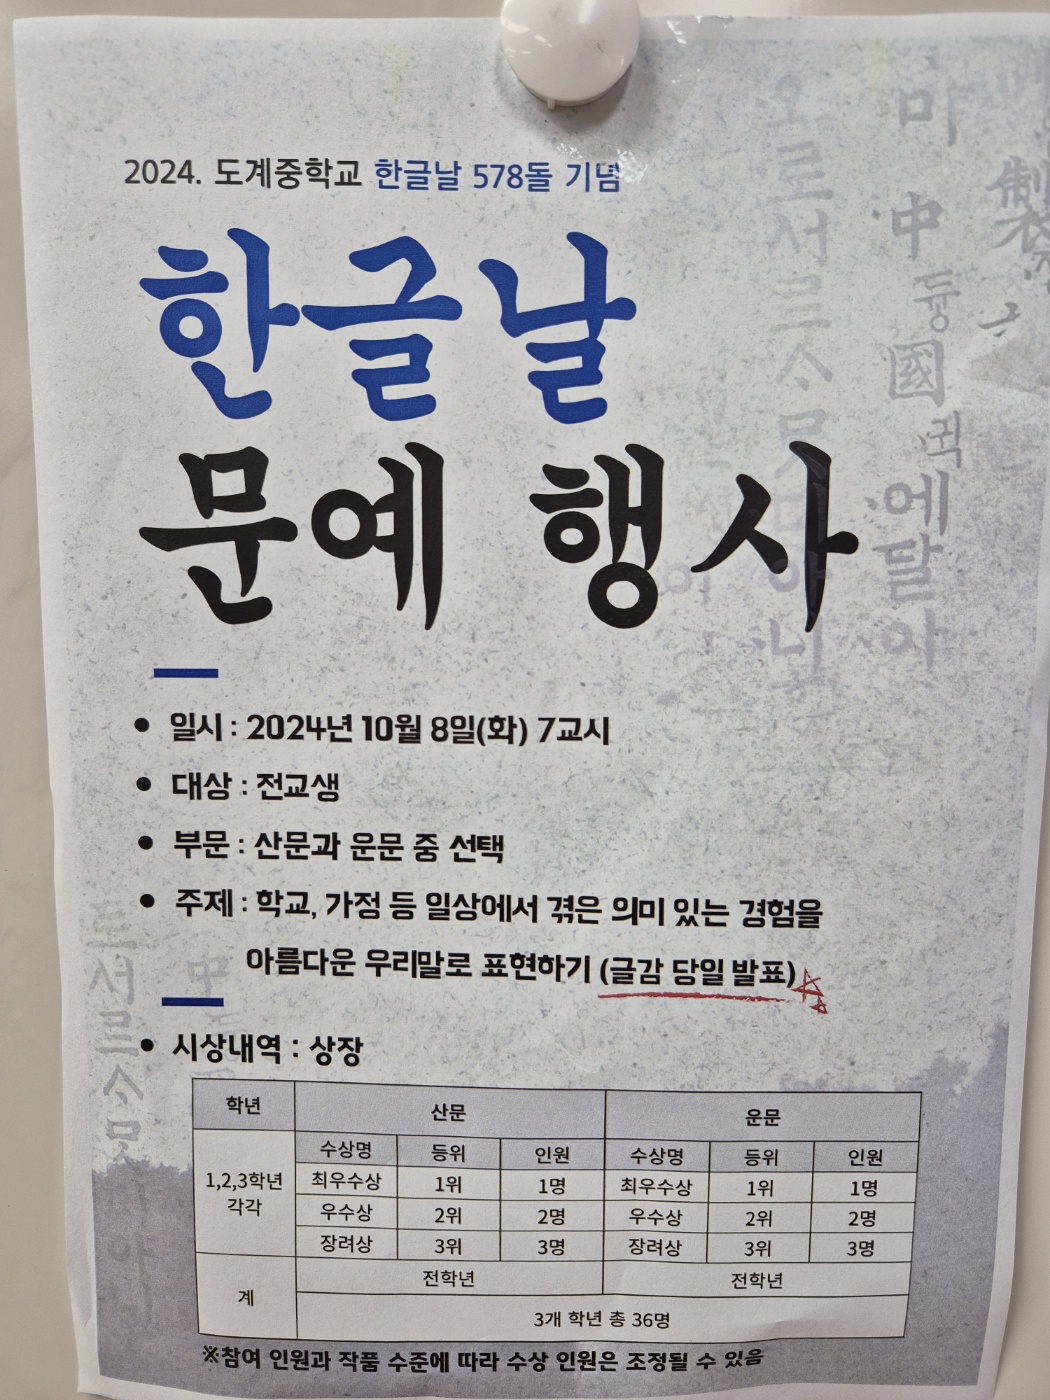 2024. 도계중학교 한글날 578돌 기념
한글날
문예 행사
• 일시 : 2024년 10월 8일(화) 7교시
• 대상 : 전교생
• 부문 : 산문과 운문 중 선택
• 주제 : 학교, 가정 등 일상에서 겪은 의미 있는 경험을
아름다운 우리말로 표현하기 (글감 당일 발표)
• 시상내역 : 상장
학년 산문 운문
수상명 등위 인원 수상명 등위 인원
1,2,3학년 각각 최우수상 1위 1명 최우수상 1위 1명
우수상 2위 2명 우수상 2위 2명
장려상 3위 3명 장려상 3위 3명
계 전학년 전학년
3개 학년 총 36명
※참여 인원과 작품 수준에 따라 수상 인원은 조정될 수 있음
製
마
中
듕
國
귁
에
달
아